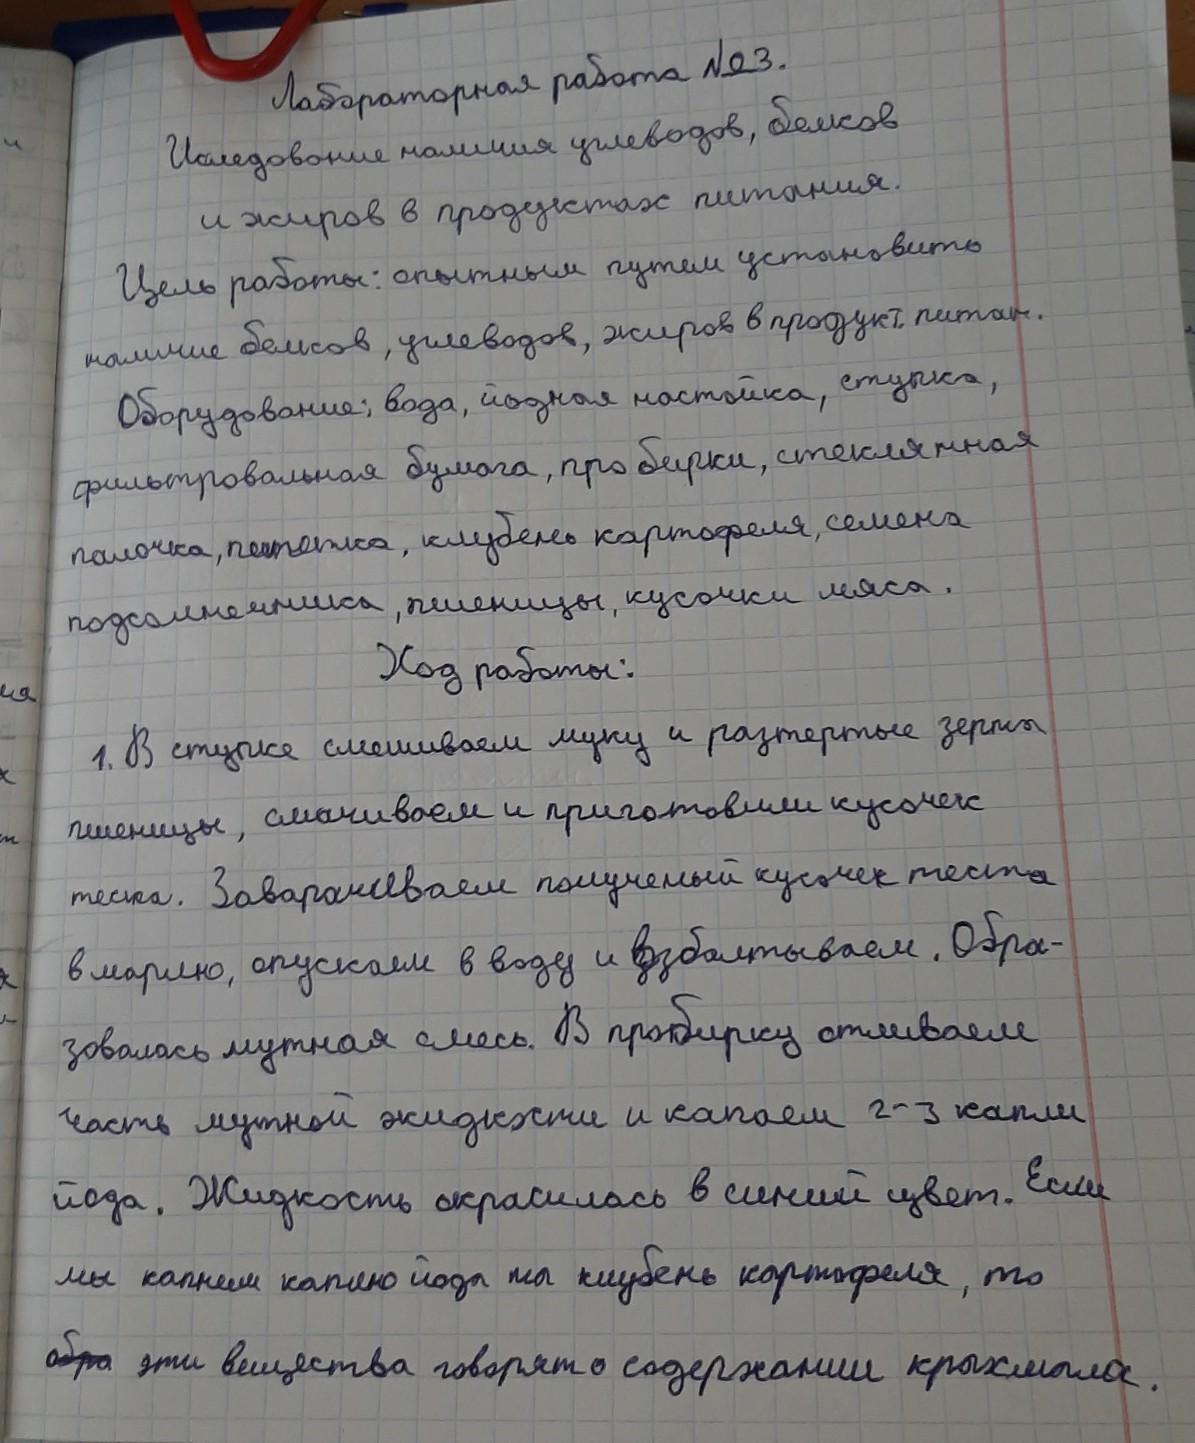 Лабораторная работа №3.
Иследование наличия углеводов, белков
и жиров в продуктах питания.
Цель работы: опытным путем установить
наличие белков, углеводов, жиров в продукт. питан.
Оборудование: вода, йодная настойка, ступка,
фильтровальная бумага, пробирки, стеклянная
палочка, пипетка, клубень картофеля, семена
подсолнечника, пшеницы, кусочки мяса.
Ход работы:
1. В ступке смешиваем муку и разтертые зерна
пшеницы, смачиваем и приготовили кусочек
теста. Заварачиваем полученый кусочек теста
в марлю, опускаем в воду и взбалтываем. Обра-
зовалась мутная смесь. В пробирку отливаем
часть мутной жидкости и капаем 2-3 капли
йода. Жидкость окрасилась в синий цвет. Если
мы капнем каплю йода на клубень картофеля, то
эти вещества говорят о содержании крыхмала.